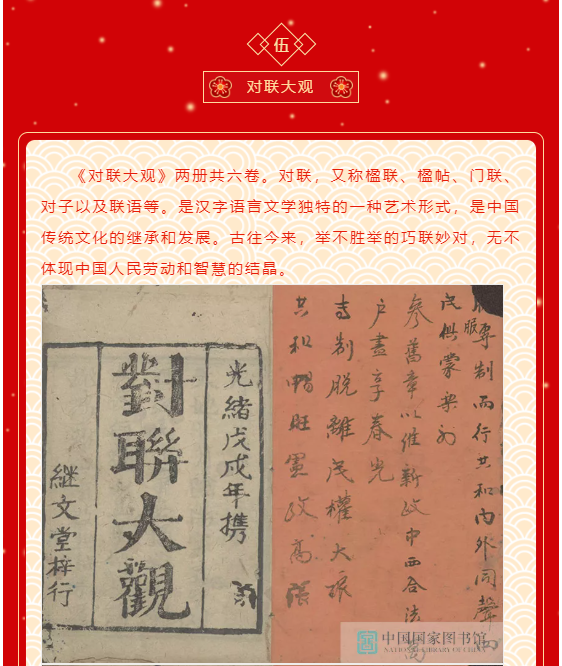 伍
对联大观
《对联大观》两册共六卷。对联，又称楹联、楹帖、门联、
对子以及联语等。是汉字语言文学独特的一种艺术形式，是中国
传统文化的继承和发展。古往今来，举不胜举的巧联妙对，无不
体现中国人民劳动和智慧的结晶。
專制而行共和内外同聲
民俱蒙樂
參舊章以維新政中西合法
户盡享春光
制脱離民權大振
共和 旺軍政高張
光緒戊戌年携
對聯大觀
继文堂梓行
中国国家图书馆
NATIONAL LIBRARY OF CHINA